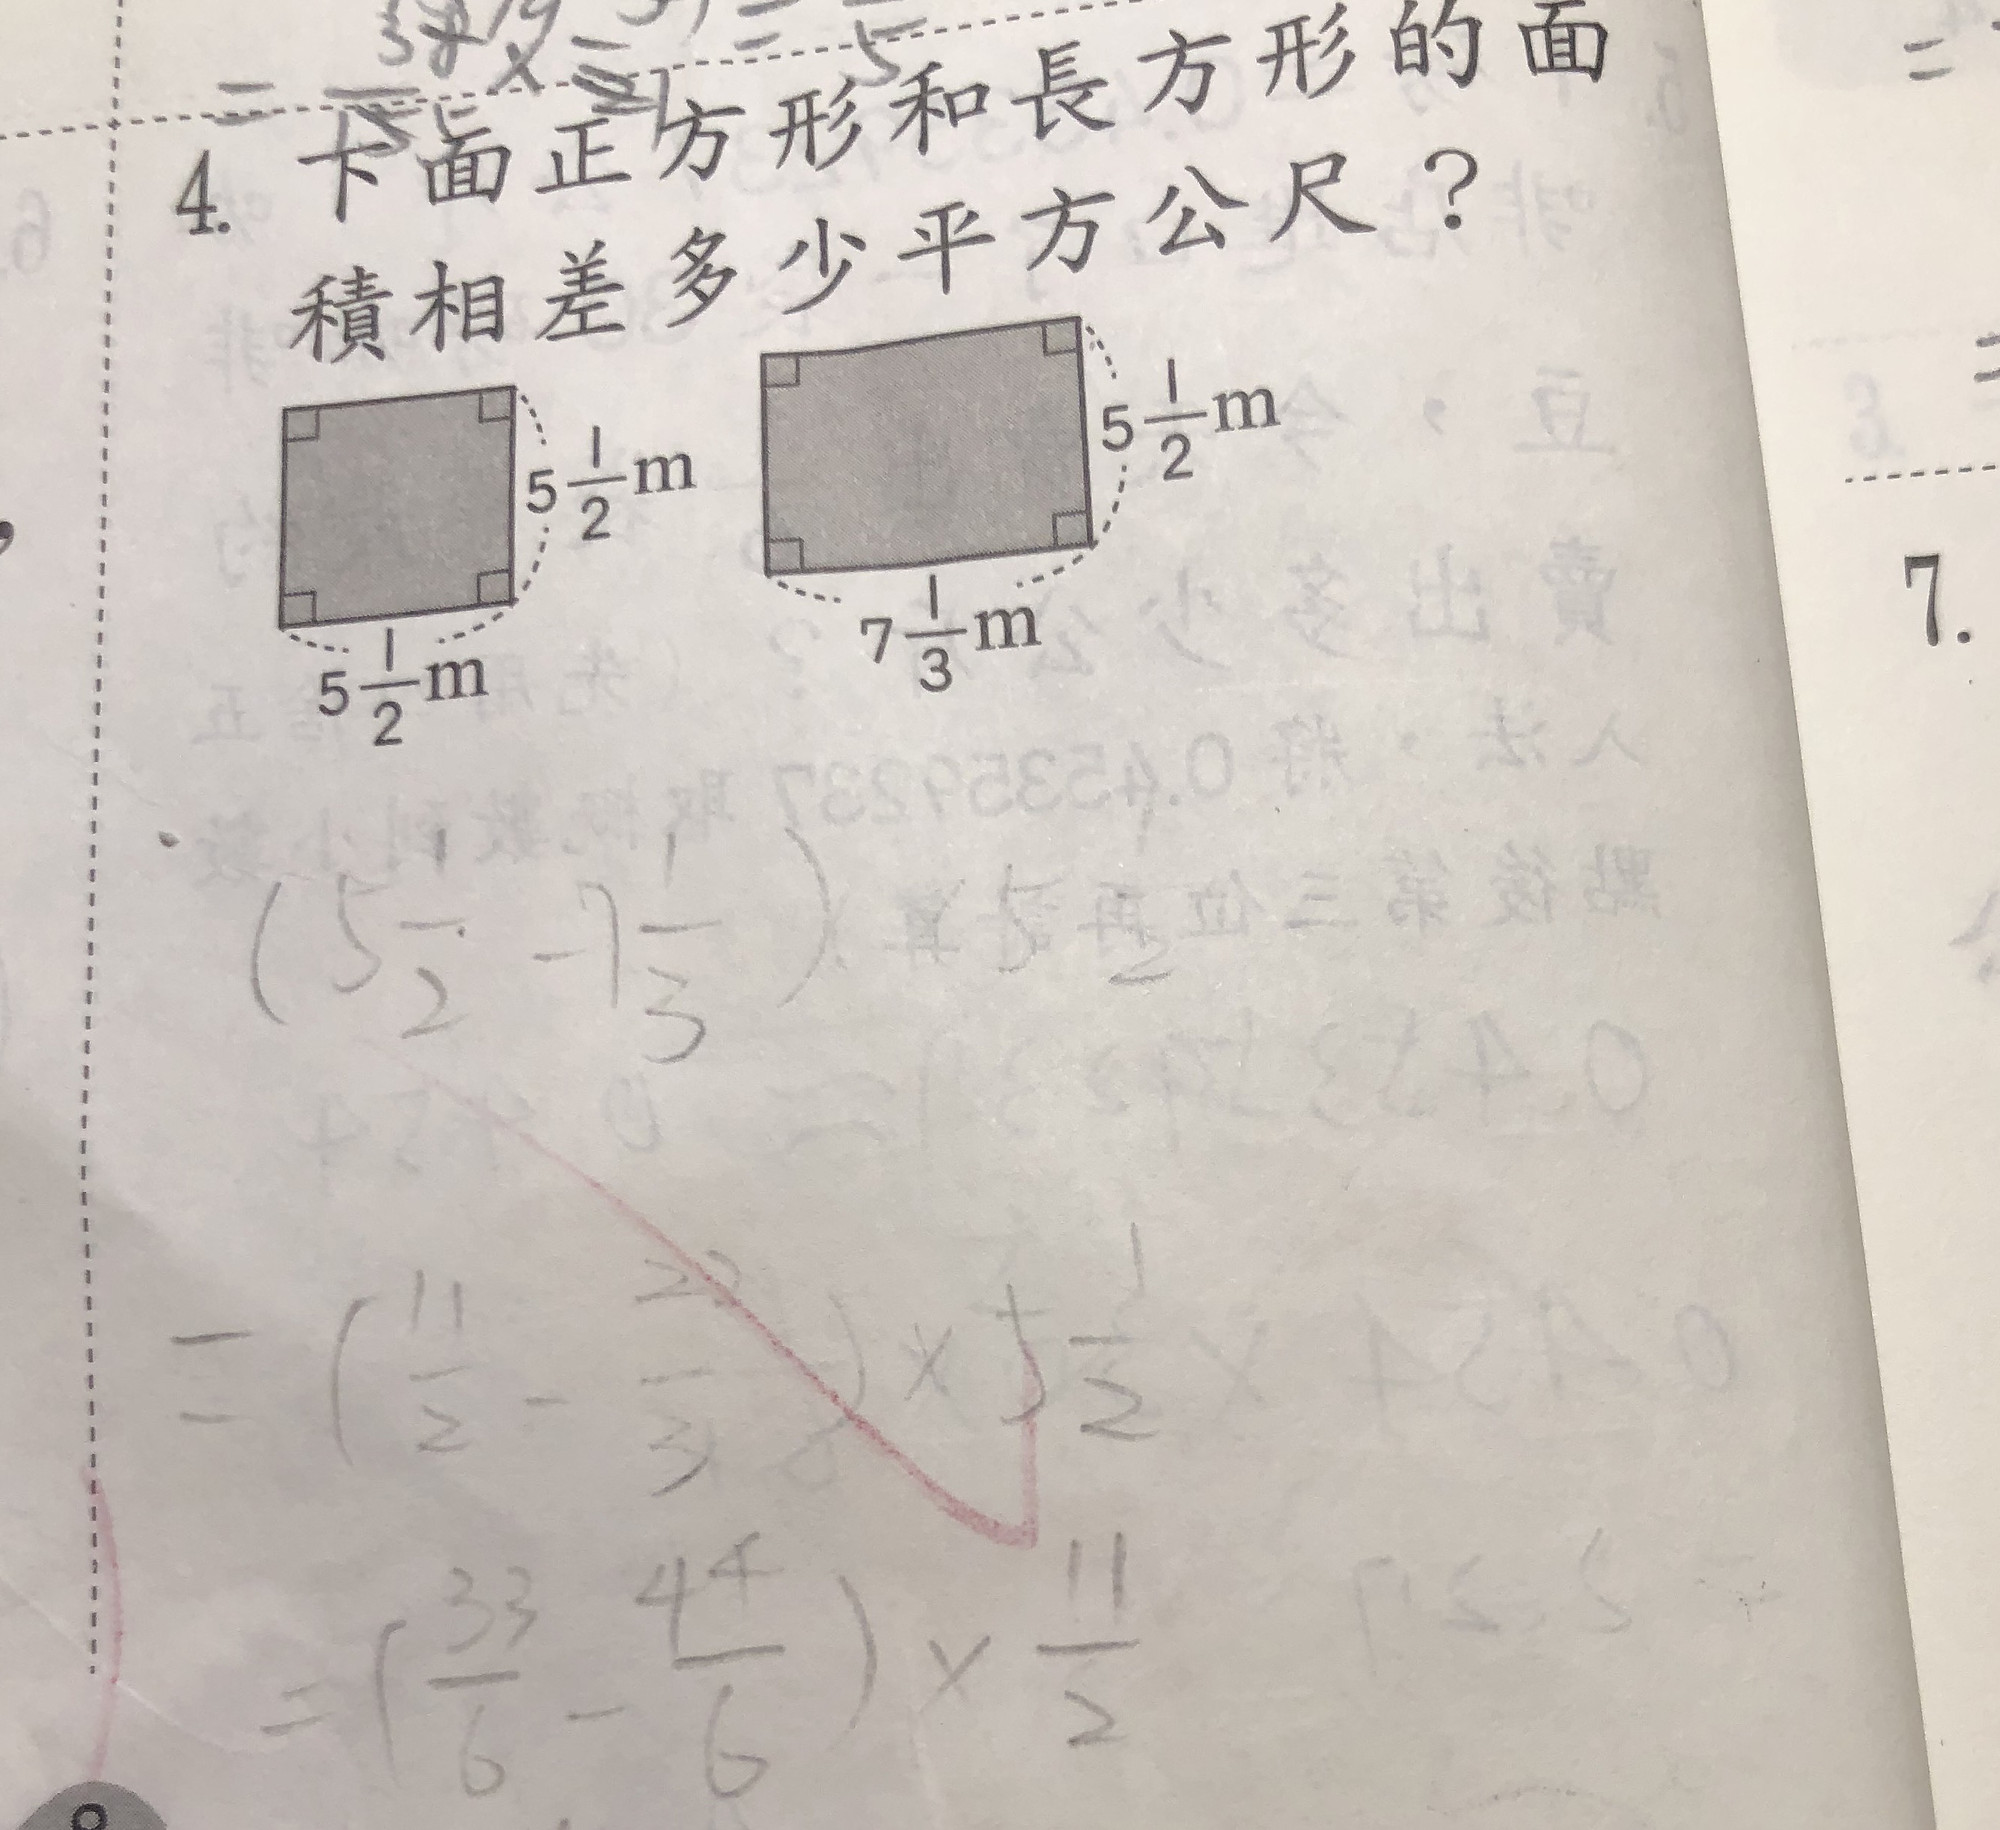 4. 下面正方形和長方形的面
積相差多少平方公尺？
5 1/2 m
5 1/2 m
5 1/2 m
7 1/3 m
(5 1/2 - 7 1/3) × 5 1/2
= (11/2 - 22/3) × 5 1/2
= (33/6 - 44/6) × 11/2
7.